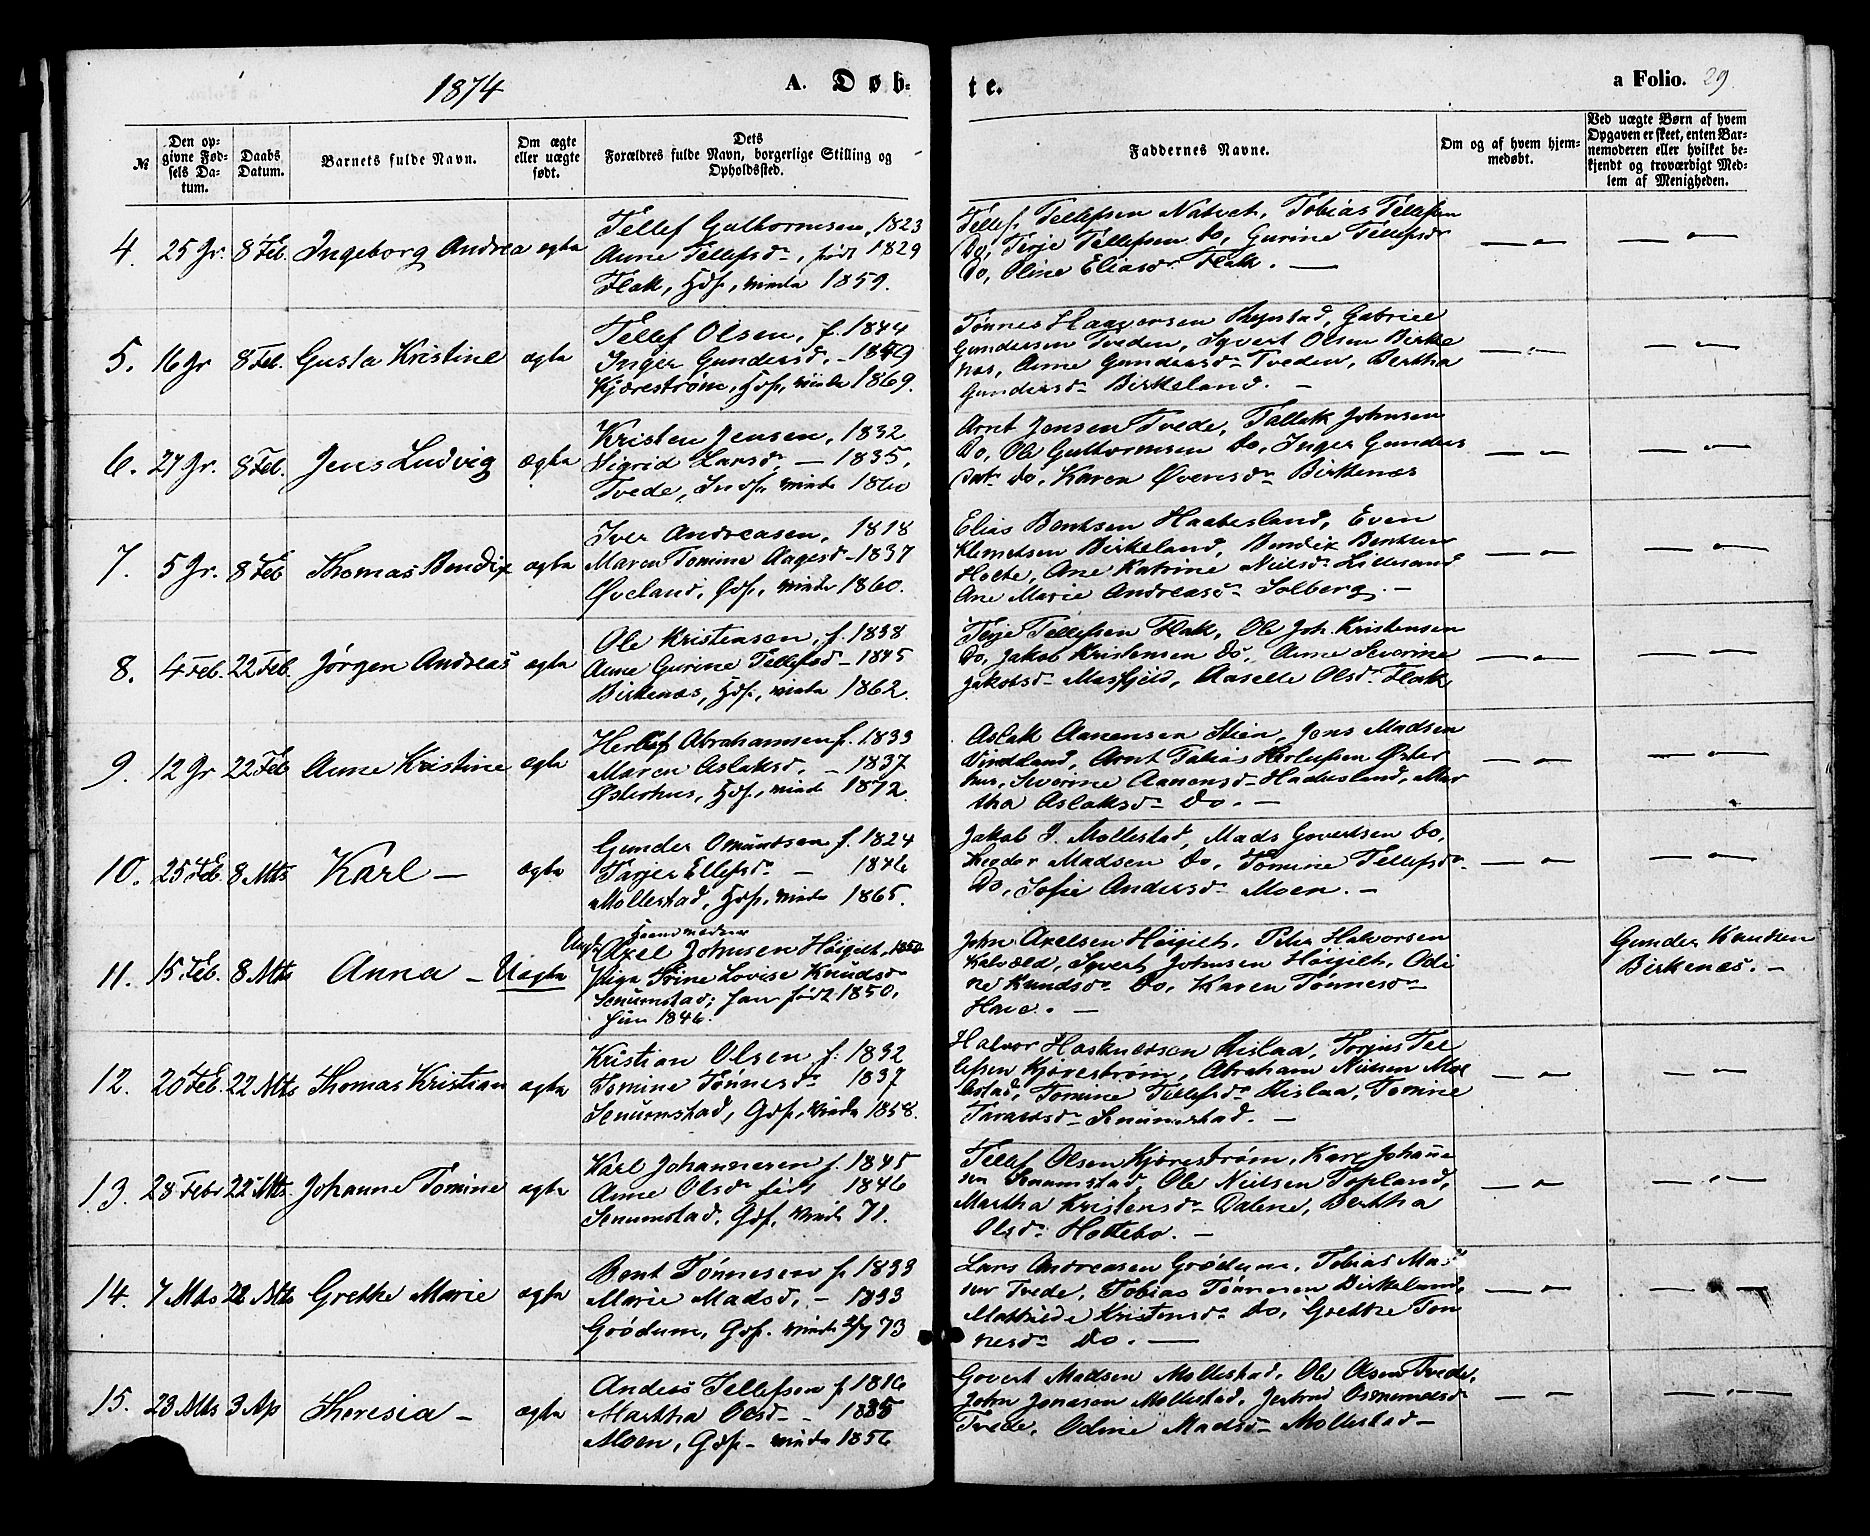 1874
A. Døb-
№
Den op-
givne Fød-
sels Da-
tum.
Daabs
Datum.
Barnets fulde Navn.
Om ægte
eller uægte
født.
Dets
Forældres fulde Navn, borgerlige Stilling og
Opholdssted.
4. 25 Jr. 8 Feb. Ingeborg Andrea ægte
Tellef Guthormsen, 1823
Anne Tellefsd., født 1829
Flak, Gdf., viede 1859.
5. 16 Jr 8 Feb. Gusta Kristine ægte
Tellef Olsen, f. 1844
Inger Gundersd. - 1849
Kjærestrøm, Gdf., viede 1869.
6. 27 Jr. 8 Feb. Jens Ludvig ægte
Kristen Jensen, 1832
Sigrid Larsd. — 1835.
Tvede, Indf., viede 1860
7. 5 Jr. 8 Feb Thomas Bendix ægte
Iver Andreasen, 1818
Maren Tomine Aagesd - 1837
Øveland, Gdf., viede 1860.
8. 4 Feb. 22 Feb. Jørgen Andreas ægte
Ole Kristensen, f. 1838
Anne Gurine Tellefsd - 1845
Birkenæs, Gdf., viede 1862.
9. 12 Jr 22 Feb Anne Kristine ægte
Herlof Abrahamsen f. 1833
Maren Aslaksd. - 1837
Østerhus, Gdf., viede 1872.
10. 25 Feb. 8 Mts Karl — ægte
Gunder Omundsen f. 1824
Tarjer Ellefsd. — 1846
Mollestad, Gdf., viede 1865.
11. 15 Feb. 8 Mts Anna — Uægte
Axel Johnsen Høigilt, 1850
Pige Trine Lovise Knudsd.
Senumstad; han født 1850,
hun 1846.
12. 20 Feb. 22 Mts Thomas Kristian ægte
Kristian Olsen f. 1832
Tomine Tønnesd. 1837
Senumstad, Gdf., viede 1858.
13. 28 Febr 22 Mts. Johanne Tomine ægte
Karl Johannesen f. 1845
Anne Olsd. født 1846
Senumstad. Gdf., viede 71.
14. 7 Mts 22 Mts Grethe Marie ægte
Bent Tønnesen f. 1833
Marie Madsd. - 1833
Grødum, Gdf. viede 2/7 73
15. 23 Mts 3 Ap Theresia — ægte
Anders Tellefsen f. 1816
Martha Olsd. - 1835
Moen, Gdf. - viede 1856
te.
a Folio. 29.
Faddernes Navne.
Om og af hvem hjem-
medøbt.
Ved uægte Børn af hvem
Opgaven er skeet, enten Bar-
nemoderen eller hvilket be-
kjendt og troværdigt Med-
lem af Menigheden.
Tellef Tellefsen Natvet, Tobias Tellefsen
Do, Terje Tellefsen Do, Gurine Tellefsd.
Do, Oline Eliasd. Flak. —
Tønnes Haaversen Rugstad, Gabriel
Gundersen Tveden, Syvert Olsen Birke
næs, Anne Gundersd. Tveden, Bertha
Gundersd. Birkeland. —
Arnt Jensen Tvede, Tallak Johnsen
Do, Ole Guthormsen Do, Inger Gunders
dat. Do, Karen Øvensd. Birkenæs
Elias Bentsen Haabesland, Even
Klemetsen Birkeland, Bendix Bentsen
Holte, Ane Katrine Nielsd. Lillesand
Ane Marie Andreasd. Solberg. —
Terje Tellefsen Flak, Ole Joh. Kristensen
Do, Jakob Kristensen Do, Anne Severine
Jakobsd. Masfjeld, Aaselle Olsd. Flak
Aslak Aanensen Stien, Jens Madsen
Vindland, Arnt Tobias Herlufsen Øster
hus, Severine Aanensd. Hadusland, Mar
tha Aslaksd. Do. —
Jakob J. Mollestad, Mads Govertsen Do,
Madsen Do, Tomine Tellefsd.
Do, Sofie Andersd. Moen. —
John Axelsen Høigilt, Peter Halvorsen
Kalvold, Syvert Johnsen Høigilt, Odi
ne Knudsd. Do, Karen Tønnesd.
Have. —
Gunder Knudsen
Birkenæs. —
Halvor Aislaa, Torjus Tel
lefsen Kjærestrøm, Abraham Nielsen Mol
lestad, Tomine Tellefsd. Aislaa, Tomine
Taraldsd. Senumstad. —
Tellef Olsen Kjærestrøm, Karl Johanne
sen Senumstad, Ole Nielsen Topland,
Martha Kristensd. Dalene, Bertha
Olsd. Hottebo. —
Lars Andreasen Grødum, Tobias Mad
sen Tvede, Tobias Tønnesen Birkeland,
Mathilde Kristensd. Do, Grethe Tøn
nesd. Do. —
Govert Madsen Mollestad, Ole Olsen Tvede,
John Jonasen Mollestad, Jertrud Osmundsd.
Tvede, Odine Madsd. Mollestad —